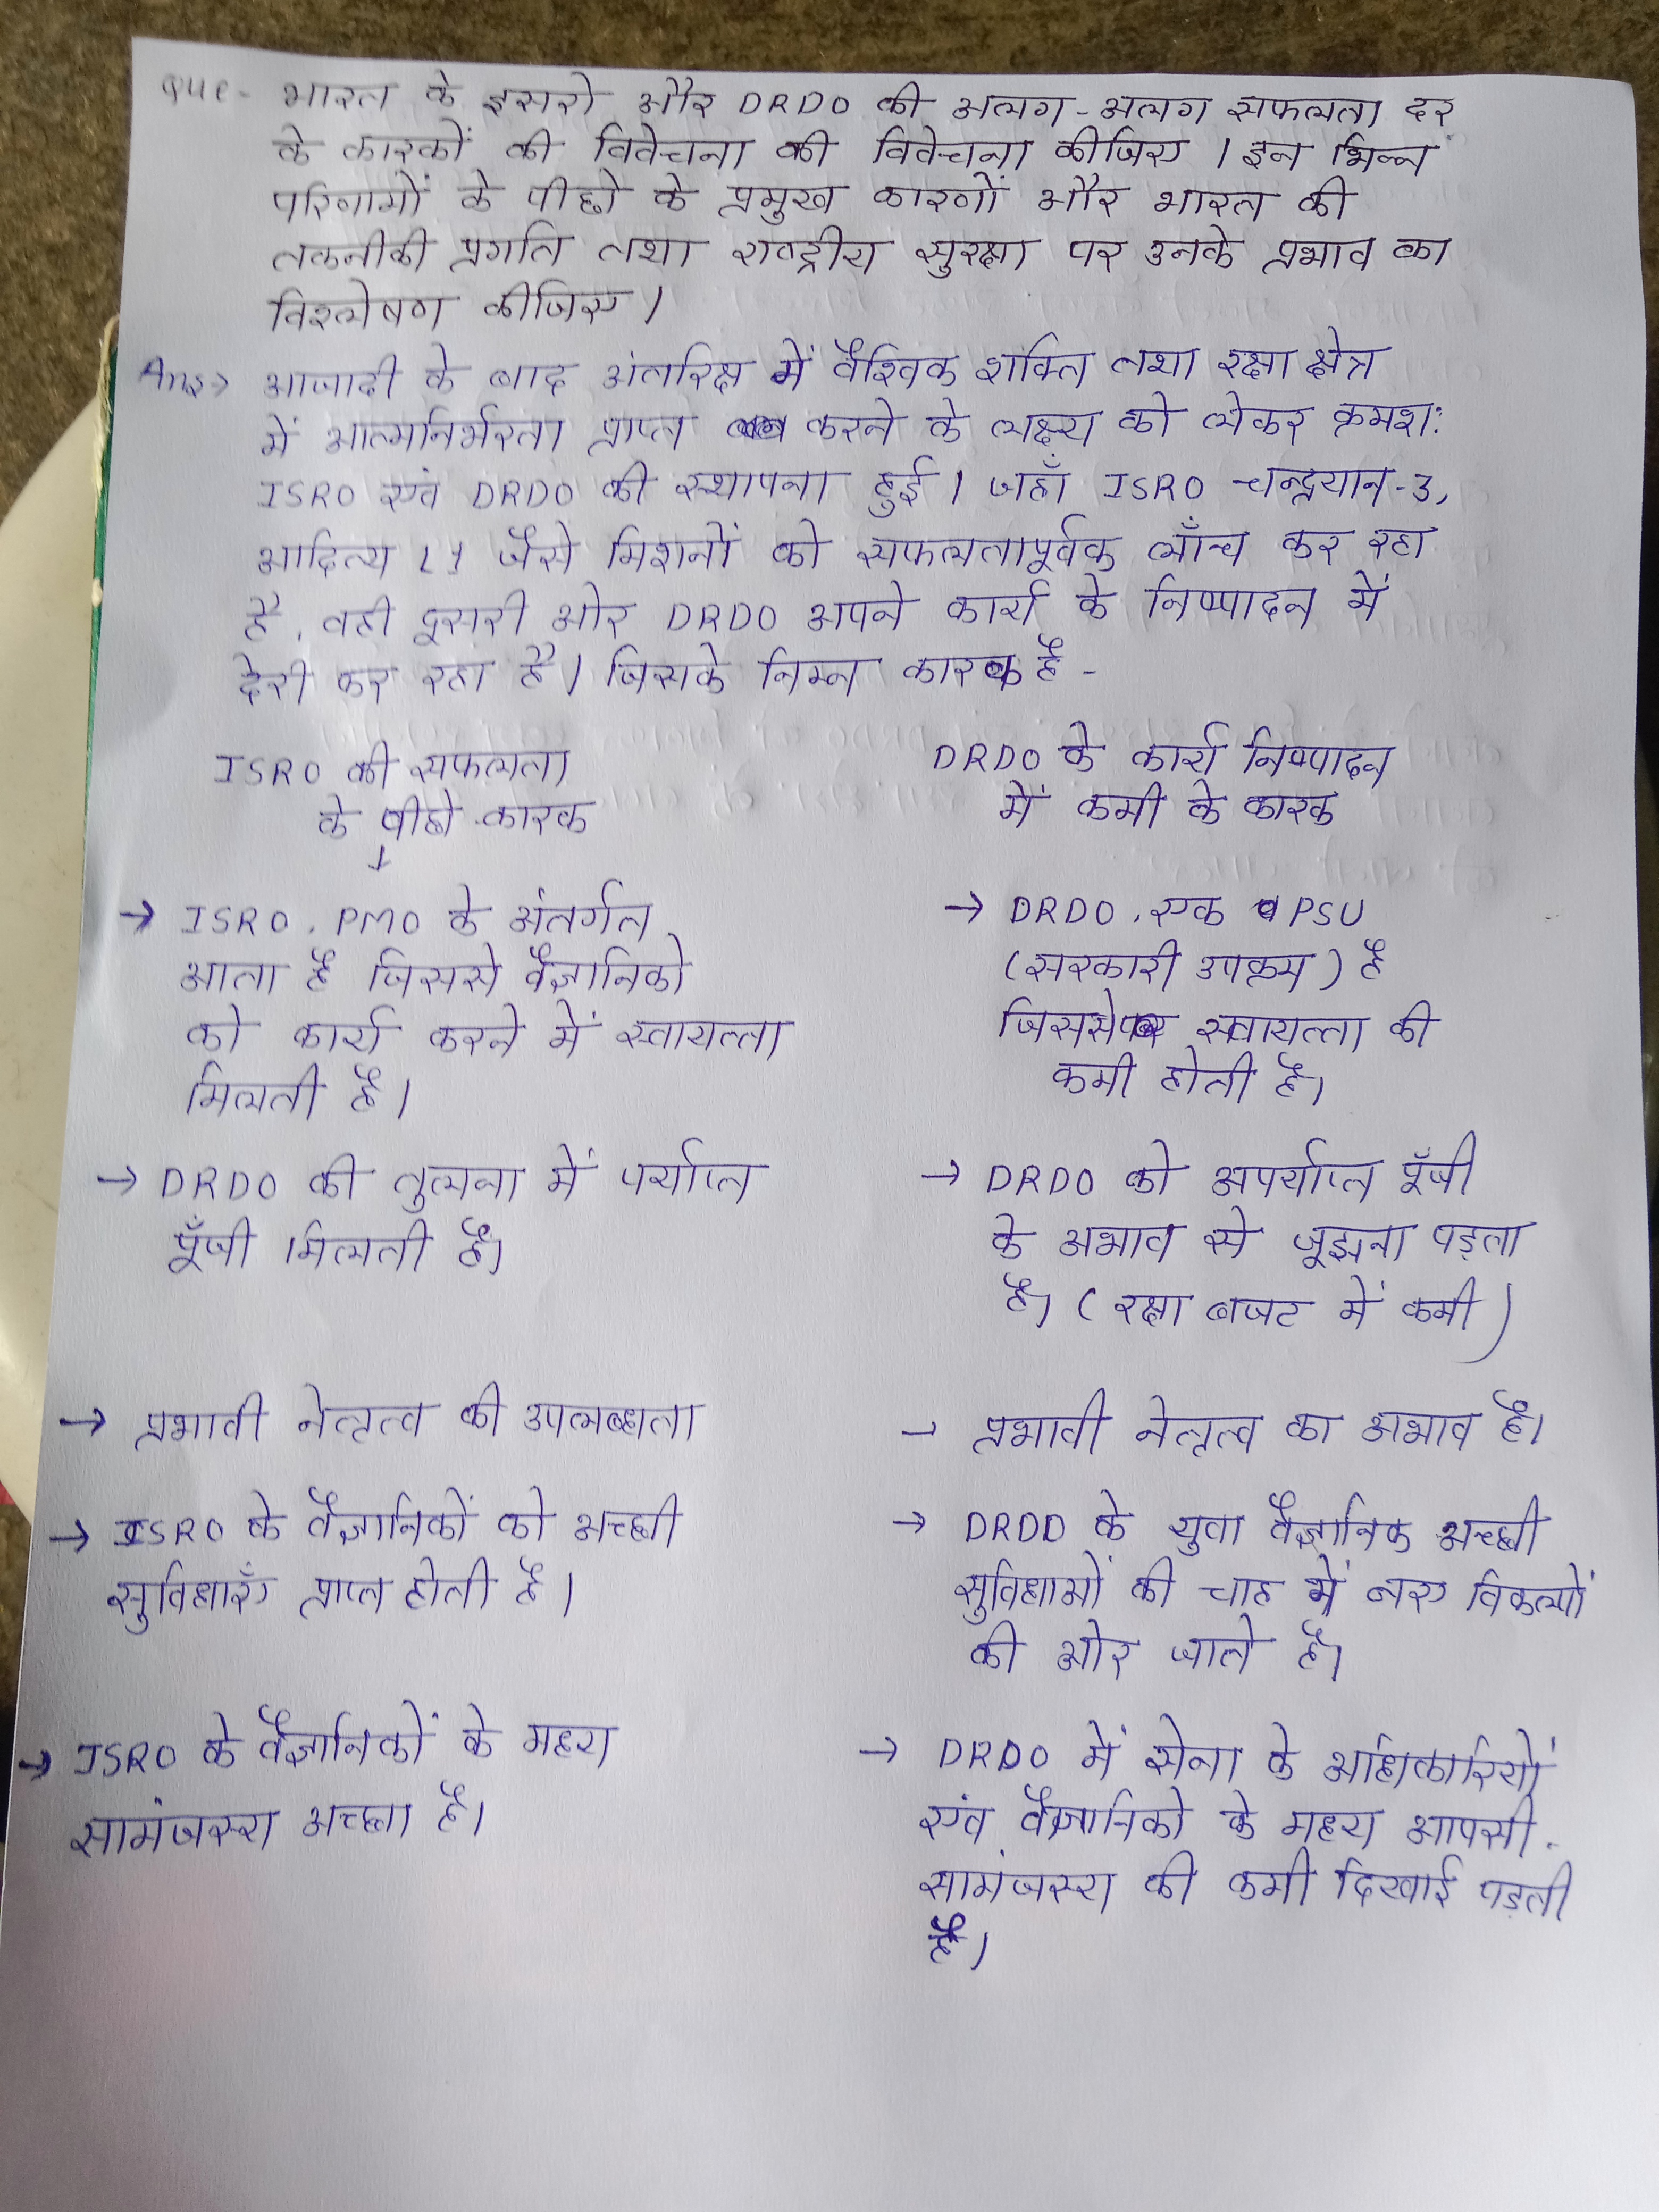 Que- भारत के इसरो और DRDO की अलग-अलग सफलता दर
के कारकों की विवेचना की विवेचना कीजिए । इन भिन्न
परिणामों के पीछे के प्रमुख कारणों और भारत की
तकनीकी प्रगति तथा राष्ट्रीय सुरक्षा पर उनके प्रभाव का
विश्लेषण कीजिए ।
Ans→ आजादी के बाद अंतरिक्ष में वैश्विक शक्ति तथा रक्षा क्षेत्र
में आत्मनिर्भरता प्राप्त करने के लक्ष्य को लेकर क्रमश:
ISRO एवं DRDO की स्थापना हुई । जहाँ ISRO चन्द्रयान-3,
आदित्य L1 जैसे मिशनों को सफलतापूर्वक लाँन्च कर रहा
है, वही दूसरी ओर DRDO अपने कार्य के निष्पादन में
देरी कर रहा है । जिसके निम्न कारक है -
ISRO की सफलता
के पीछे कारक
↓
DRDO के कार्य निष्पादन
में कमी के कारक
→ ISRO, PMO के अंतर्गत
आता है जिससे वैज्ञानिको
को कार्य करने में स्वायत्ता
मिलती है ।
→ DRDO, एक PSU
(सरकारी उपक्रम) है
जिससे स्वायत्ता की
कमी होती है ।
→ DRDO की तुलना में पर्याप्त
पूँजी मिलती है ।
→ DRDO को अपर्याप्त पूँजी
के अभाव से जूझना पड़ता
है । (रक्षा बजट में कमी)
→ प्रभावी नेतृत्व की उपलब्धता
→ प्रभावी नेतृत्व का अभाव है ।
→ ISRO के वैज्ञानिकों को अच्छी
सुविधाएँ प्राप्त होती है ।
→ DRDO के युवा वैज्ञानिक अच्छी
सुविधाओं की चाह में नए विकल्पों
की ओर जाते है ।
→ ISRO के वैज्ञानिकों के मध्य
सामंजस्य अच्छा है ।
→ DRDO में सेना के अधिकारियों
एवं वैज्ञानिको के मध्य आपसी
सामंजस्य की कमी दिखाई पड़ती
है ।